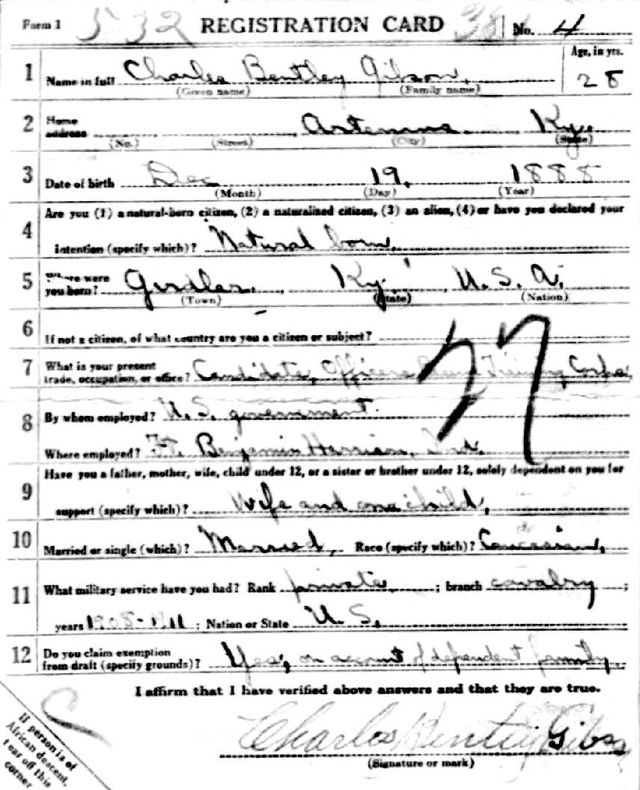 Form 1 532 REGISTRATION CARD 38 No. 4
1 Name in full Charles Bentley Gibson, Age, in yrs. 28
(Given name) (Family name)
2 Home address Artemus Ky.
(No.) (Street) (City) (State)
3 Date of birth Dec 19, 1888
(Month) (Day) (Year)
4 Are you (1) a natural-born citizen, (2) a naturalized citizen, (3) an alien, (4) or have you declared your
intention (specify which)? Natural born.
5 Where were you born? Girdler, Ky. U. S. A.
(Town) (State) (Nation)
6 If not a citizen, of what country are you a citizen or subject?
7 What is your present
trade, occupation, or office? Candidate, Officers Training Corps
8 By whom employed? U. S. government.
Where employed? Ft. Benjamin Harrison, Ind.
9 Have you a father, mother, wife, child under 12, or a sister or brother under 12, solely dependent on you for
support (specify which)? Wife and one child,
10 Married or single (which)? Married, Race (specify which)? Caucasian,
11 What military service have you had? Rank private ; branch cavalry ;
years 1908-1911 ; Nation or State U. S.
12 Do you claim exemption
from draft (specify grounds)? Yes, on account of dependent family.
I affirm that I have verified above answers and that they are true.
Charles Bentley Gibson
(Signature or mark)
If person is of
African descent,
tear off this
corner